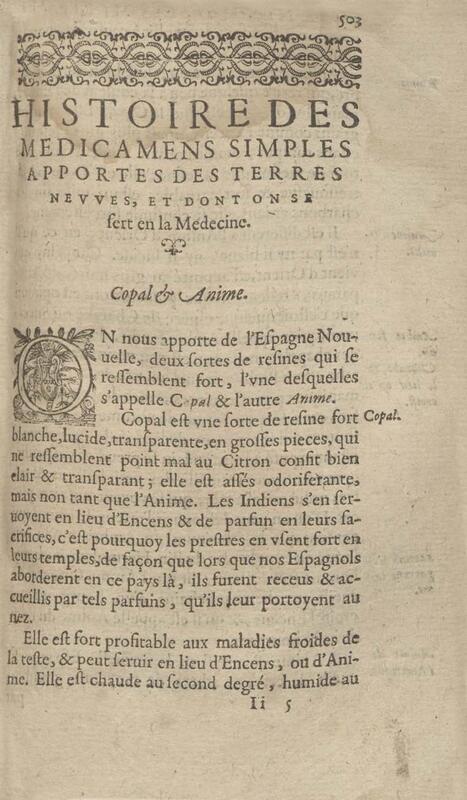 503
HISTOIRE DES
MEDICAMENS SIMPLES
APPORTES DES TERRES
NEVVES, ET DONT ON SE
ſert en la Medecine.
Copal & Anime.
ON nous apporte de l'Eſpagne Nou-
uelle, deux ſortes de reſines qui ſe
reſſemblent fort, l'vne deſquelles
s'appelle Copal & l'autre Anime.
Copal eſt vne ſorte de reſine fort Copal.
blanche, lucide, tranſparente, en groſſes pieces, qui
ne reſſemblent point mal au Citron confit bien
clair & tranſparant; elle eſt aſſés odoriferante,
mais non tant que l'Anime. Les Indiens s'en ſer-
uoyent en lieu d'Encens & de parfun en leurs ſa-
crifices, c'eſt pourquoy les preſtres en vſent fort en
leurs temples, de façon que lors que nos Eſpagnols
aborderent en ce pays là, ils furent receus & ac-
cueillis par tels parfuins, qu'ils leur portoyent au
nez.
Elle eſt fort profitable aux maladies froides de
la teſte, & peut ſeruir en lieu d'Encens, ou d'Ani-
me. Elle eſt chaude au ſecond degré, humide au
Ii 5